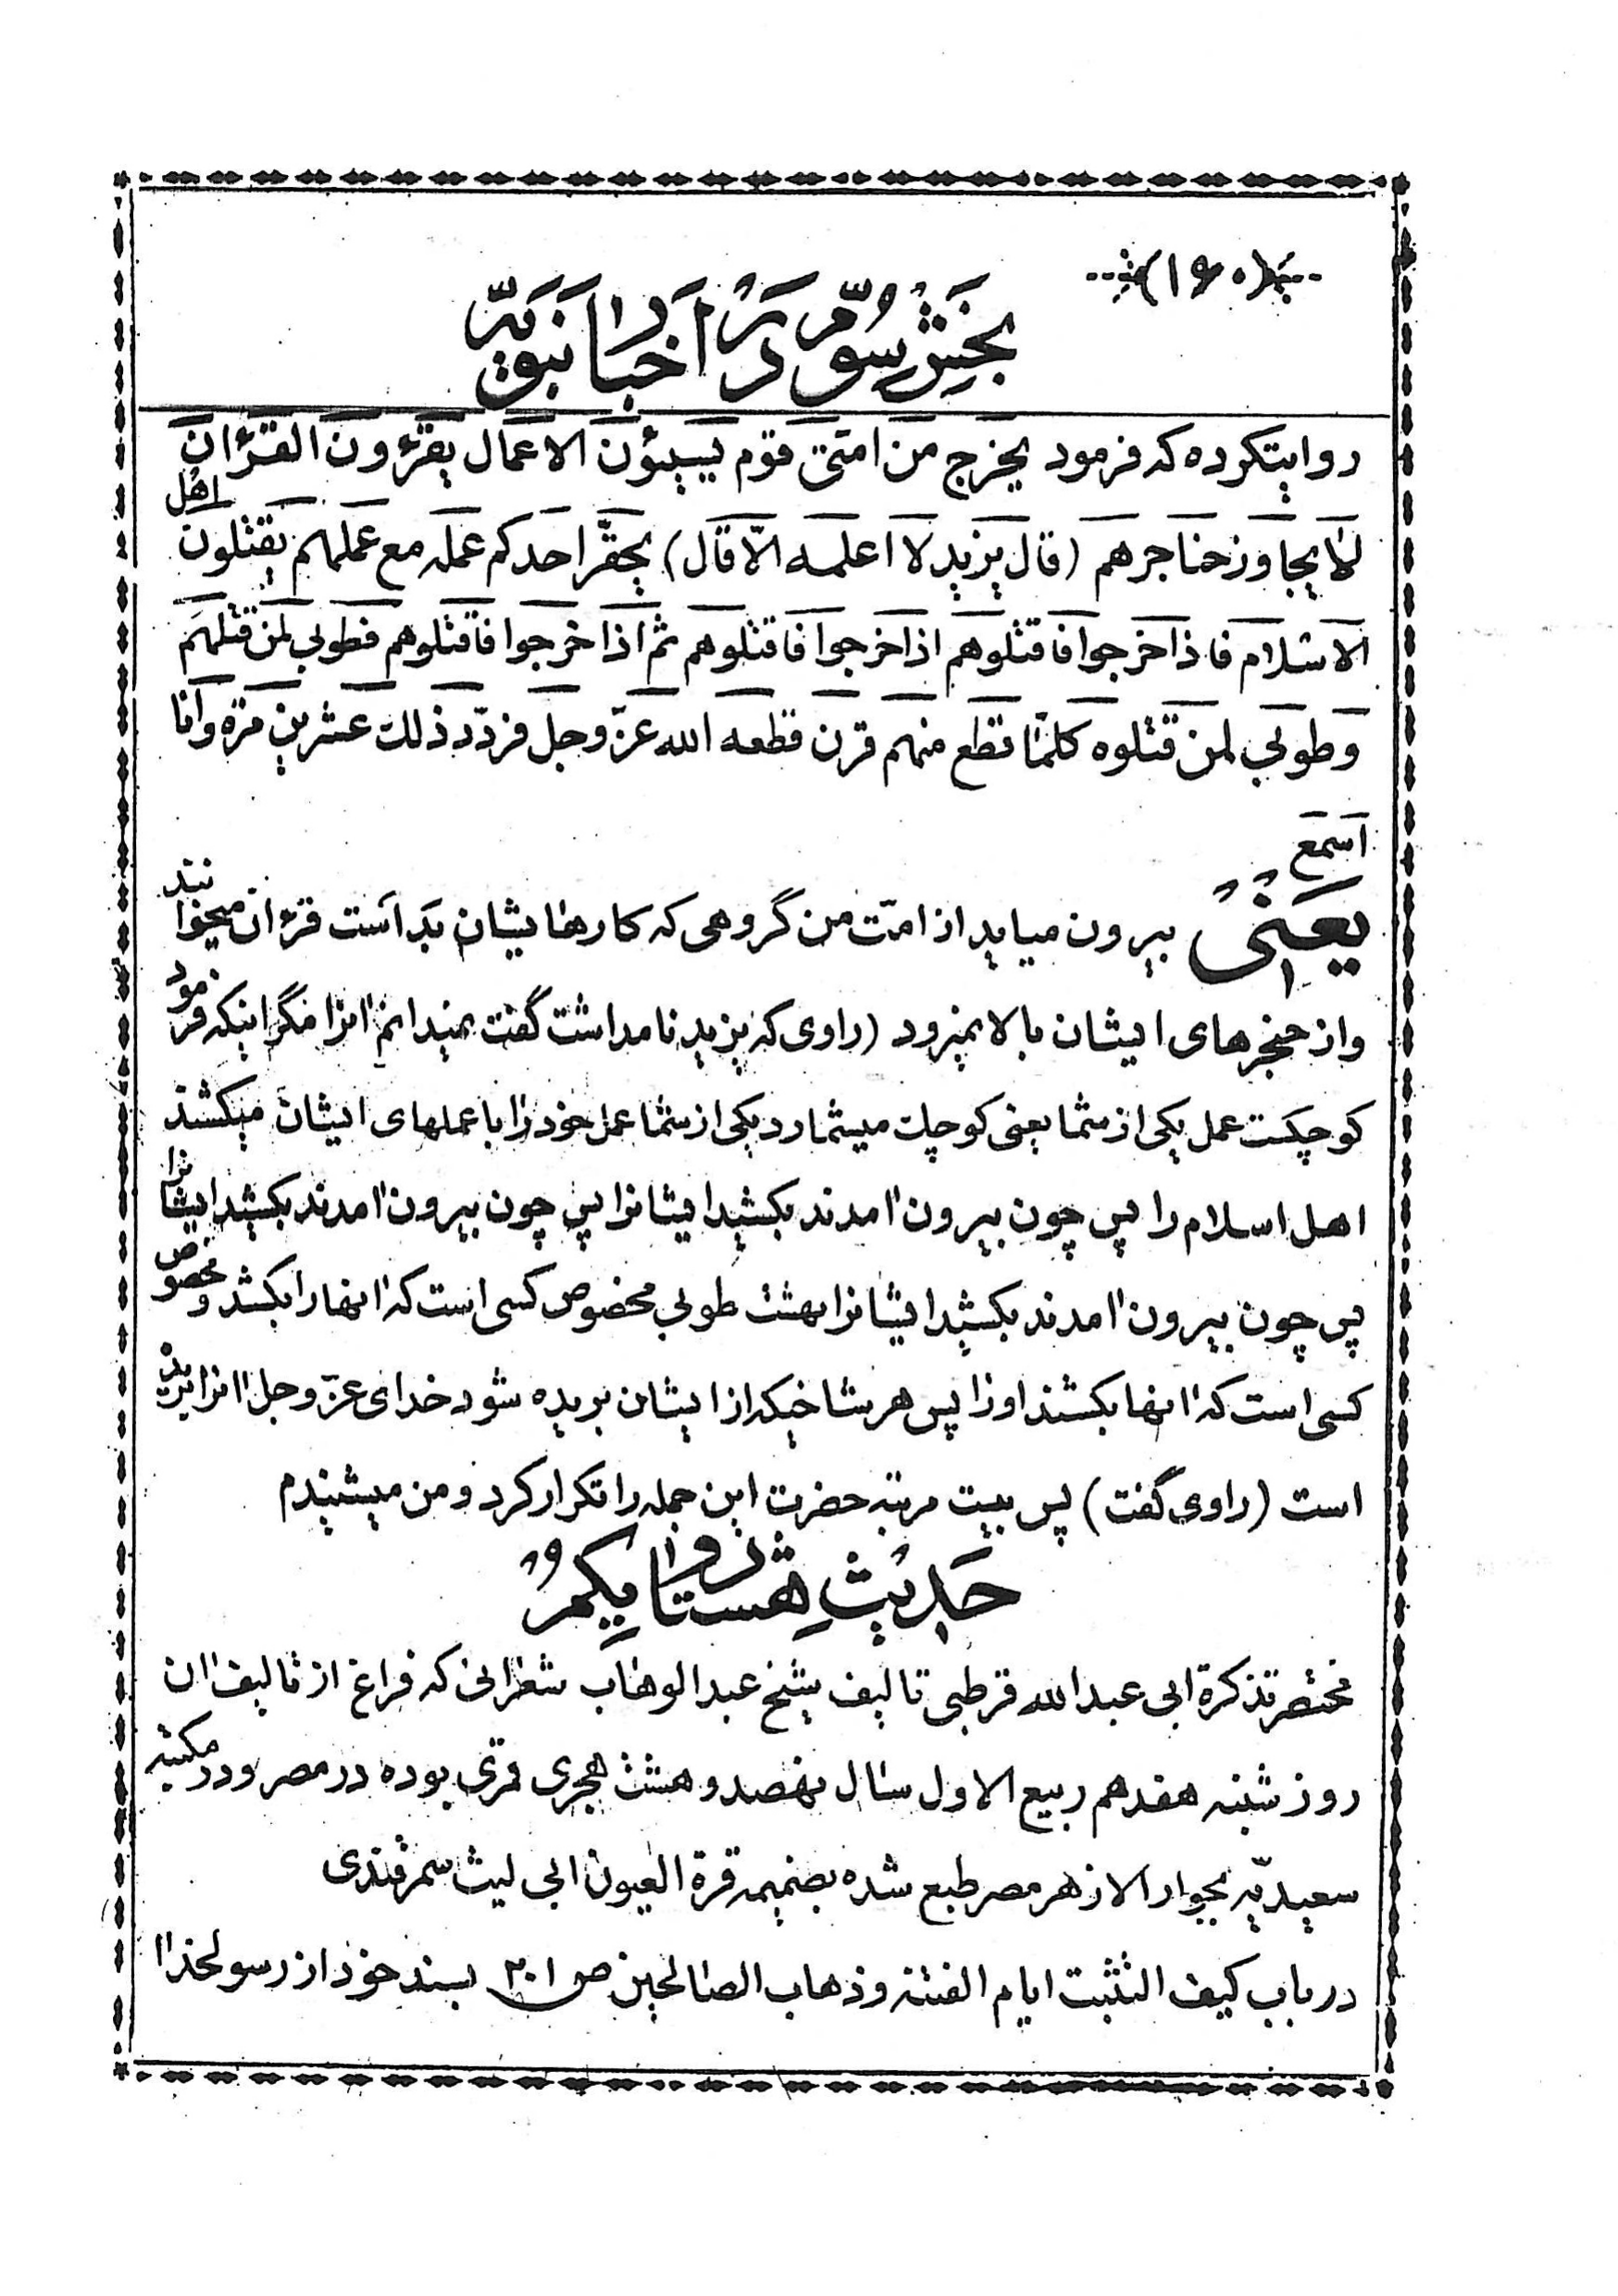 (۱۶۰)
بخش سوّم در اخبار نبویّه
روایتکرده که فرمود یخرج من امتی قوم یسیئون الاعمال یقرؤن القرءان
لا یجاوز حناجرهم (قال یزید لا اعلمه الّا قال) یحقّر احدکم عمله مع عملهم یقتلون اهل
الاسلام فاذا خرجوا فاقتلوهم اذا خرجوا فاقتلوهم ثم اذا خرجوا فاقتلوهم فطوبی لمن قتلهم
وطوبی لمن قتلوه کلمّا قطع منهم قرن قطعه الله عزّ وجل فردّد ذلك عشرین مرّه وانا
اسمع
یعنی بیرون میاید از امّت من گروهی که کارهایشان بد است قرءان میخوانند
واز حنجرهای ایشان بالا نمیرود (راوی که یزید نامداشت گفت نمیدانم انرا مگر اینکه فرمود
کوچکست عمل یکی از شما یعنی کوچك میشمارد یکی از شما عمل خود را با عملهای ایشان میکشند
اهل اسلام را پس چون بیرون امدند بکشید ایشانرا پس چون بیرون امدند بکشید ایشانرا
پس چون بیرون امدند بکشید ایشانرا بهشت طوبی مخصوص کسی است که انها را بکشد و مخصوص
کسی است که انها بکشند او را پس هر شاخیکه از ایشان بریده شود خدای عزّ وجل انرا بریده
است (راوی گفت) پس بیست مرتبه حضرت این جمله را تکرار کرد ومن میشنیدم
حدیث هشتاد و یکم
مختصر تذکرة ابی عبدالله قرطبی تالیف شیخ عبدالوهاب شعرانی که فراغ از تالیف ان
روز شنبه هفدهم ربیع الاول سال نهصد و هشت هجری قمری بوده در مصر ودر مکتبه
سعیدیّه بجوار الازهر مصر طبع شده بضمیمه قرة العیون ابی لیث سمرقندی
در باب کیف التثبت ایام الفتنه وذهاب الصالحین ص ۲۰۱ بسند خود از رسولخدا